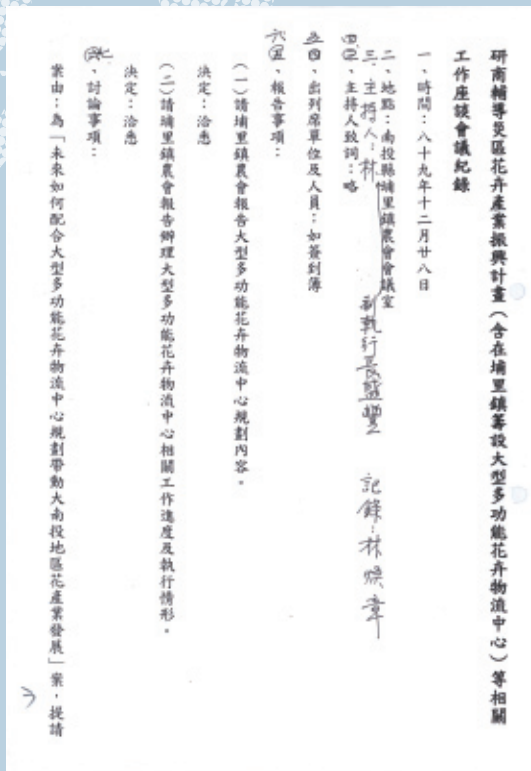 研商輔導災區花卉產業振興計畫（含在埔里鎮籌設大型多功能花卉物流中心）等相關
工作座談會議紀錄
一、時間：八十九年十二月廿八日
二、地點：南投縣埔里鎮農會會議室
三、主持人：林副執行長盛豐 記錄：林煥章
四、主持人致詞：略
五、出列席單位及人員：如簽到簿
六、報告事項：
（一）請埔里鎮農會報告大型多功能花卉物流中心規劃內容。
決定：洽悉
（二）請埔里鎮農會報告辦理大型多功能花卉物流中心相關工作進度及執行情形。
決定：洽悉
七、討論事項：
案由：為「未來如何配合大型多功能花卉物流中心規劃帶動大南投地區花產業發展」案，提請